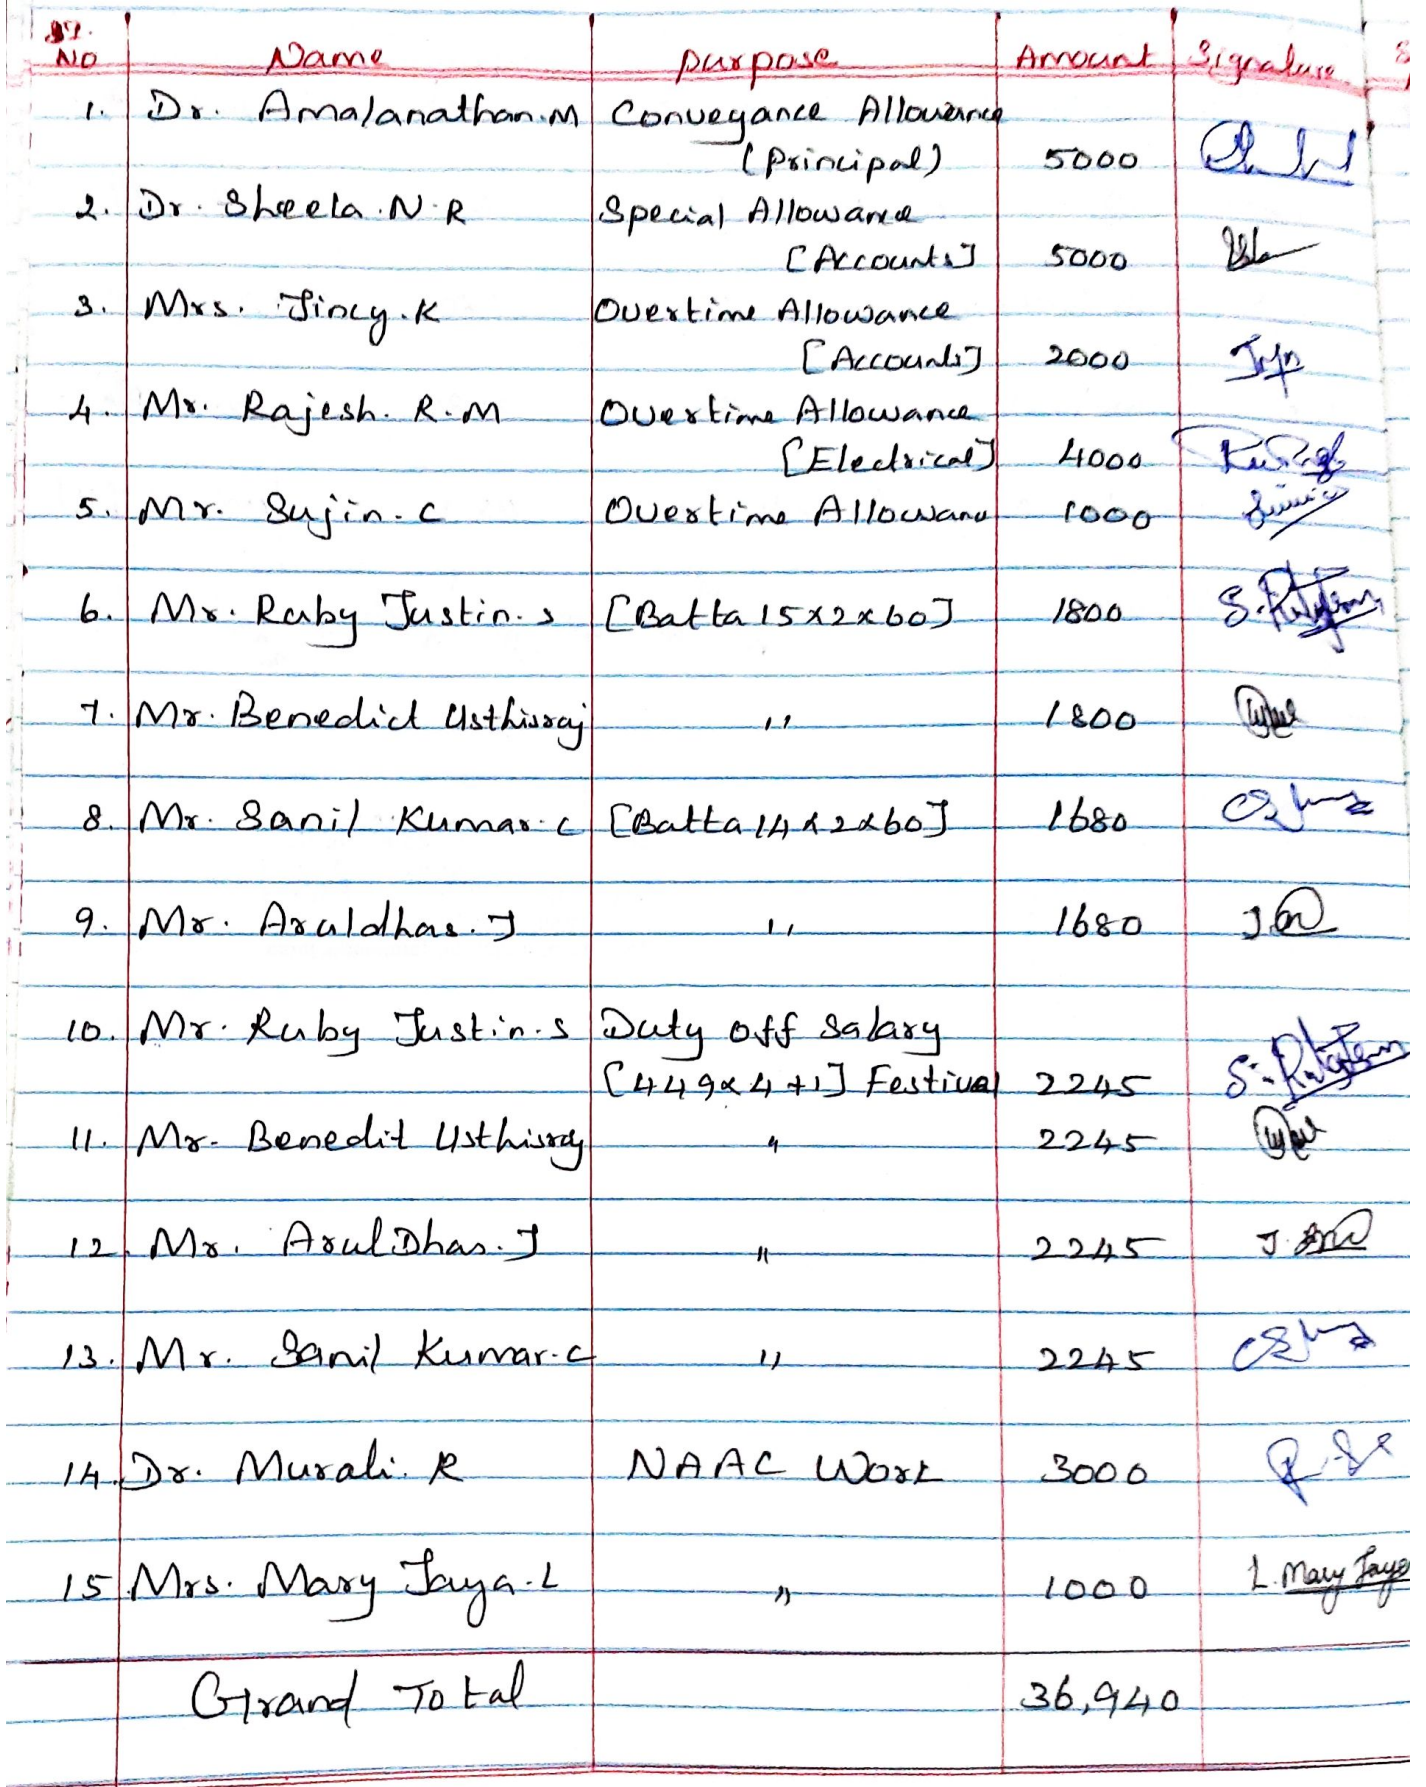 Sl. No Name Purpose Amount Signature
1. Dr. Amalanathan.M Conveyance Allowance
(Principal) 5000
2. Dr. Sheela.N.R Special Allowance
[Accounts] 5000
3. Mrs. Jincy.K Overtime Allowance
[Accounts] 2000
4. Mr. Rajesh.R.M Overtime Allowance
[Electrical] 4000
5. Mr. Sujin.C Overtime Allowanc 1000
6. Mr. Ruby Justin.S [Batta 15x2x60] 1800
7. Mr. Benedict Usthisraj " 1800
8. Mr. Sanil Kumar.C [Batta 14x2x60] 1680
9. Mr. Aruldhas.J " 1680
10. Mr. Ruby Justin.S Duty off Salary
[449x4+1] Festival 2245
11. Mr. Benedit Usthisraj " 2245
12. Mr. Arul Dhas.J " 2245
13. Mr. Sanil Kumar.C " 2245
14. Dr. Murali.R NAAC Work 3000
15 Mrs. Mary Jaya.L " 1000 L. Mary Jaya
Grand Total 36,940